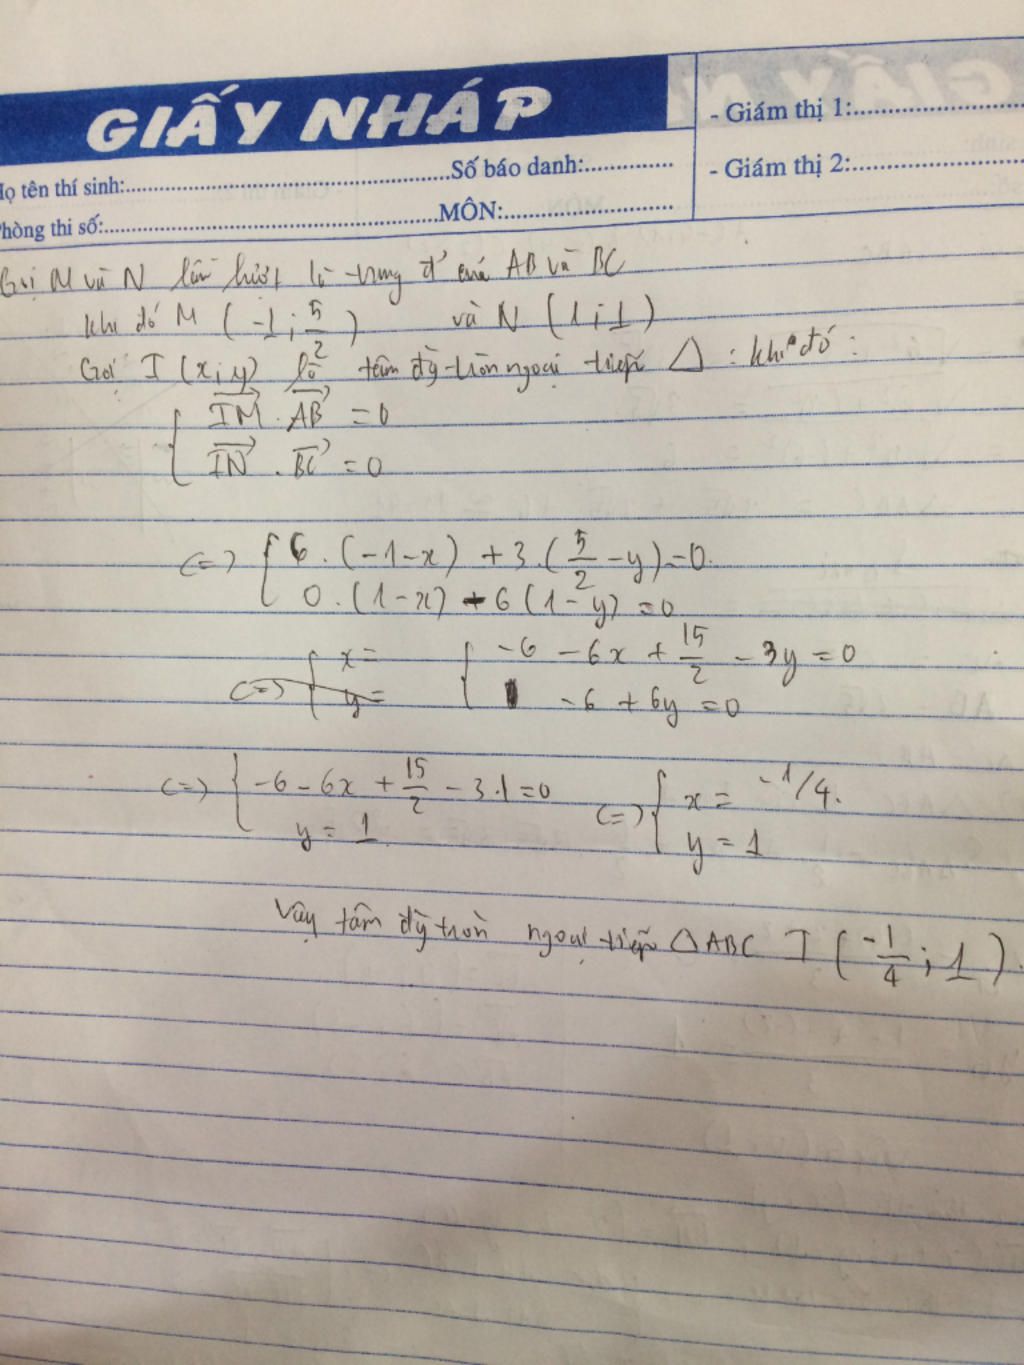 GIẤY NHÁP
- Giám thị 1:
- Giám thị 2:
Số báo danh:
Họ tên thí sinh:
Phòng thi số:
MÔN:
Gọi M và N lần lượt là trung đ' của AB và BC
khi đó M (-1; 5/2) và N (1; 1)
Gọi I (x; y) là tâm đg tròn ngoại tiếp △ : khi đó :
IM . AB = 0
IN . BC = 0
<=> { 6 . (-1-x) + 3 . (5/2 - y) = 0.
0 . (1-x) - 6 (1-y) = 0
<=> { x = { -6 - 6x + 15/2 - 3y = 0
y = -6 + 6y = 0
<=> { -6 - 6x + 15/2 - 3.1 = 0 <=> { x = -1/4.
y = 1 y = 1
Vậy tâm đg tròn ngoại tiếp △ABC I (-1/4 ; 1).